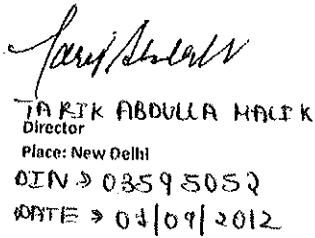 TARIK ABDULLA MALIK
Director
Place: New Delhi
DIN → 03595052
DATE → 01/09/2012